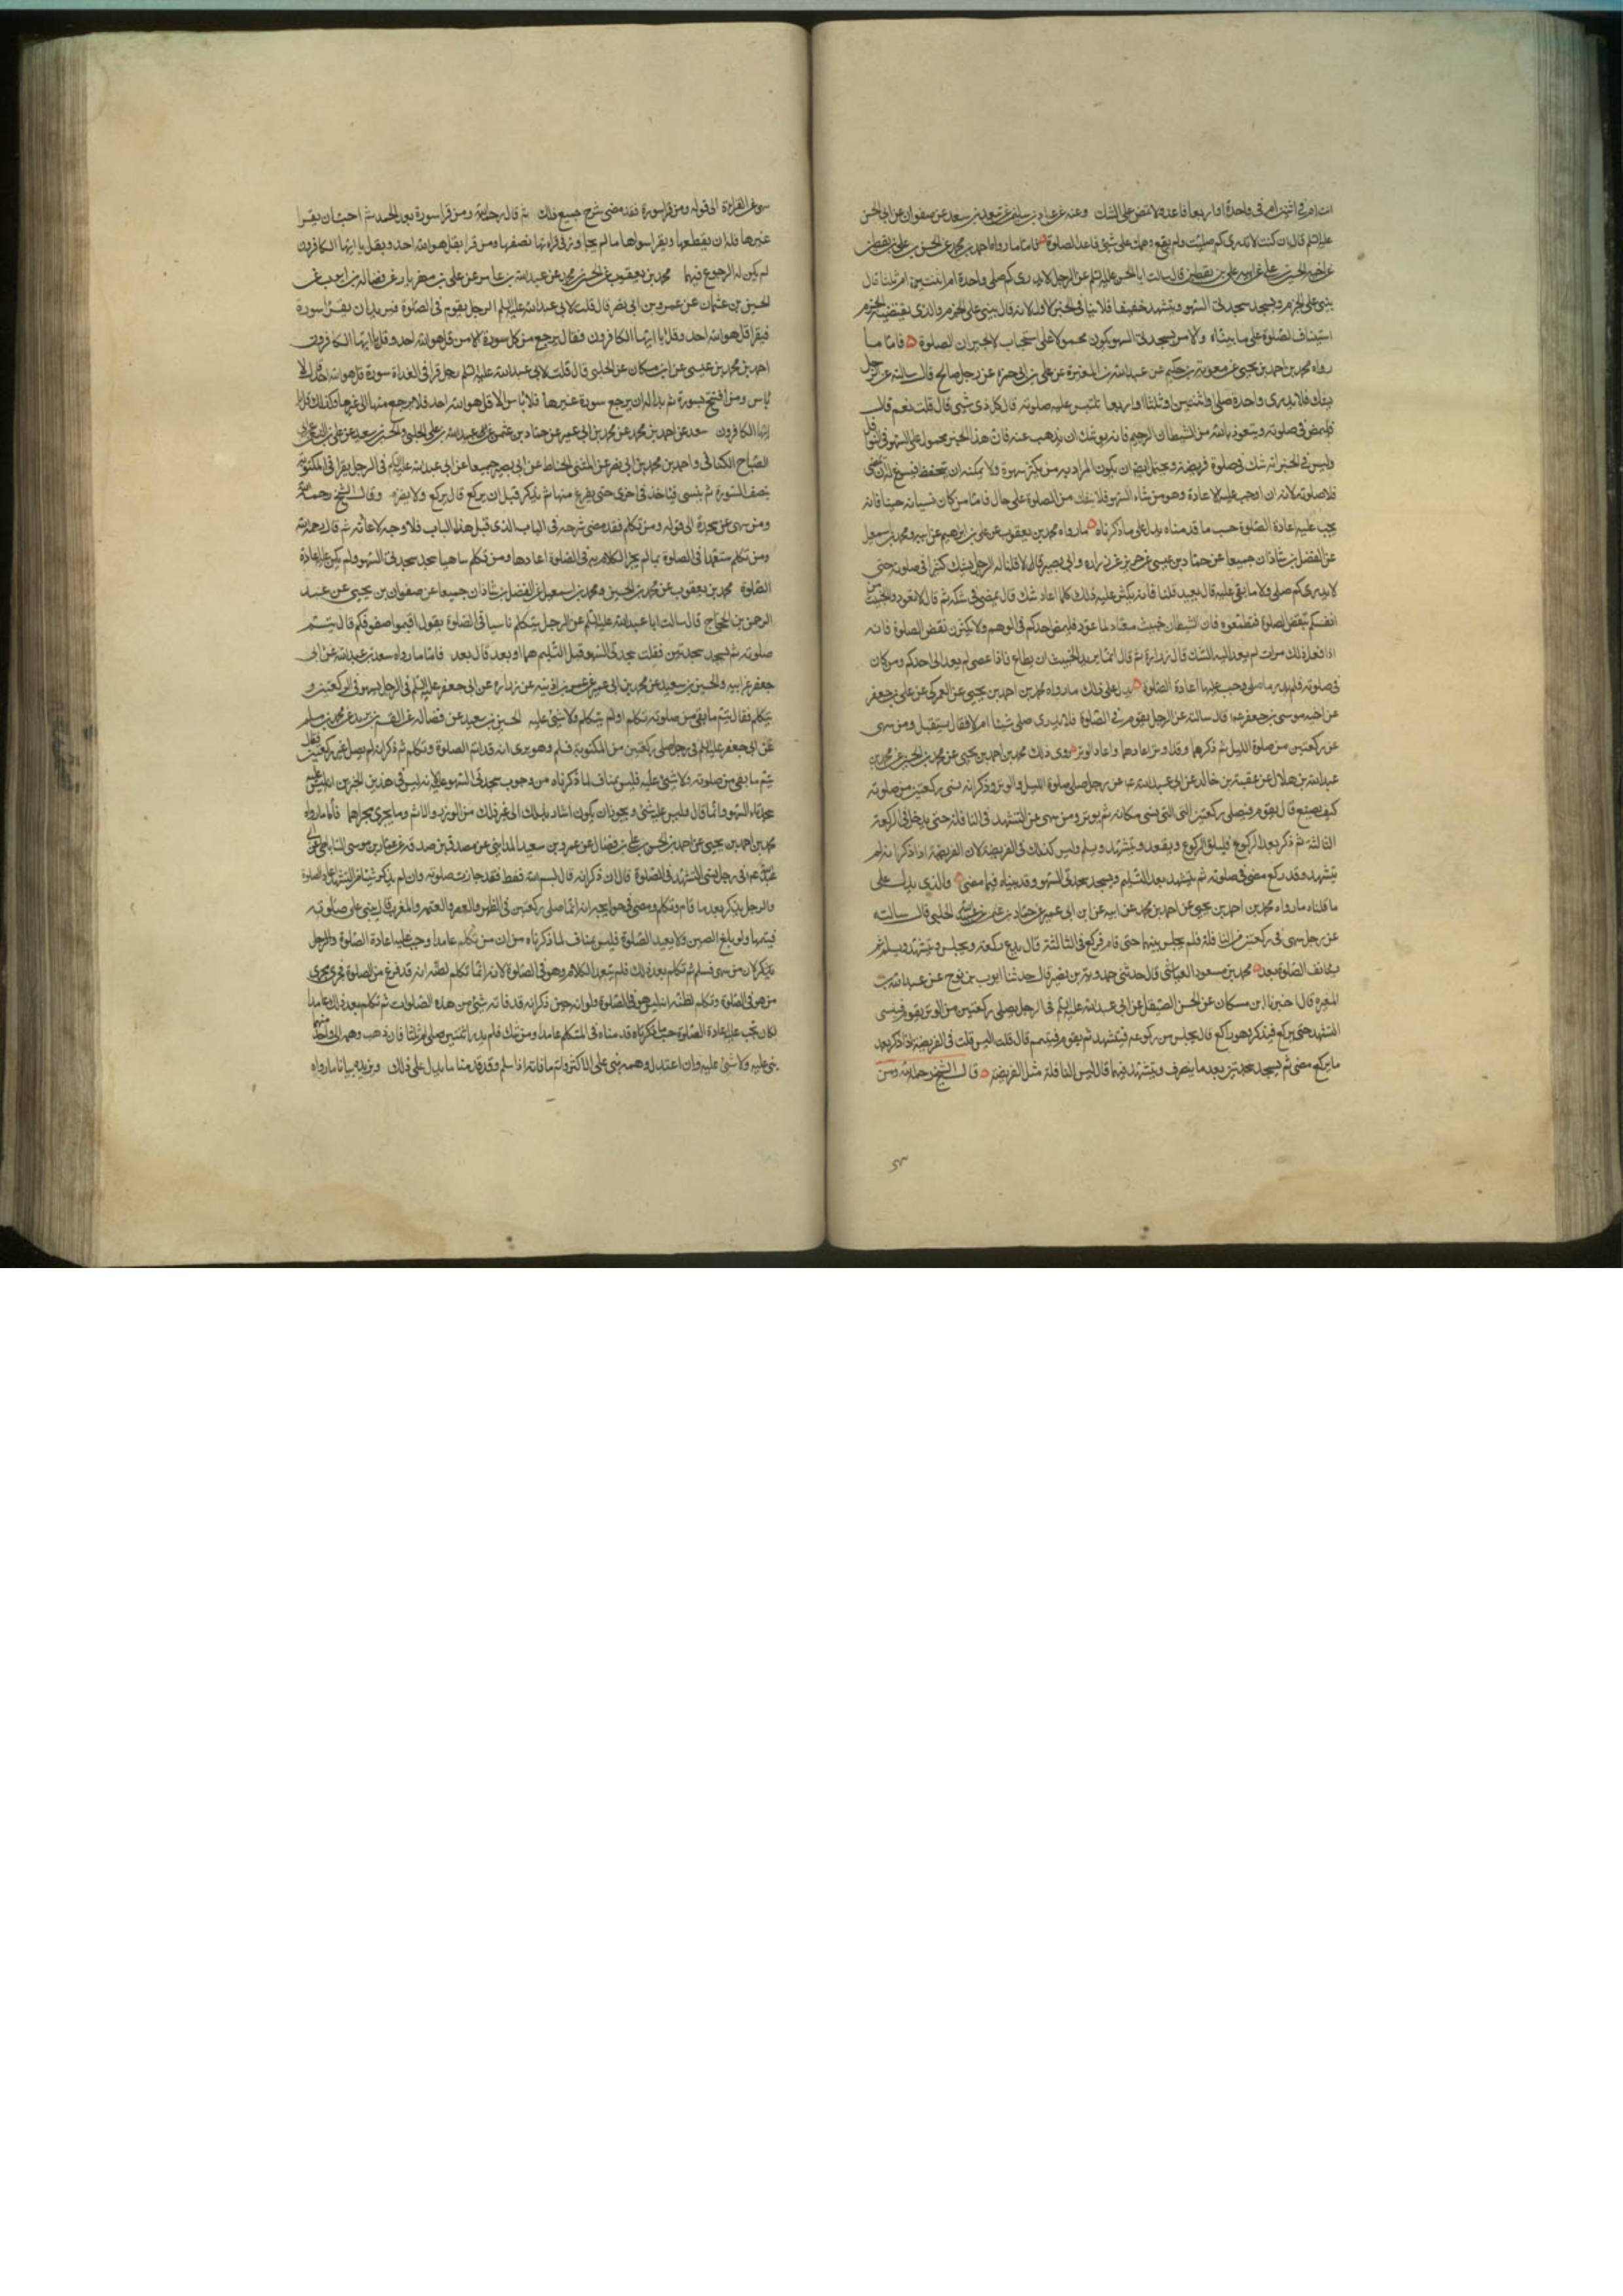 انت ام في اثنتين ام في واحدة او اربعا فاعد ولا تمض على الشك وعنه عن عباد بن سليمن عن سعد بن سعد عن صفوان عن ابي الحسن
عليه السلم قال ان كنت لا تدري كم صليت ولم يقع وهمك على شئ فاعد الصلوة فاما ما رواه احمد بن محمد عن الحسن بن علي بن يقطين
عن اخيه الحسين بن علي عن ابيه علي بن يقطين قال سالت ابا الحسن عليه السلم عن الرجل لا يدري كم صلى واحدة ام اثنتين ام ثلثا قال
يبني على الجزم ويسجد سجدتي السهو ويتشهد خفيفا فلا ينافي الخبر الاول لانه قال يبني على الجزم والذي يقتضيه الجزم
استيناف الصلوة على ما بيناه والامر بسجدتي السهو يكون محمولا على استحباب لا لجبران الصلوة فاما ما
رواه محمد بن احمد بن يحيى عن معوية بن حكيم عن عبد الله بن المغيرة عن علي بن ابي حمزة عن رجل صالح قال سالته عن الرجل
يشك فلا يدري واحدة صلى او اثنتين او ثلثا او اربعا تلتبس عليه صلوته قال كل ذي شئ قال قلت نعم قال
فليمض في صلوته ويتعوذ بالله من الشيطان الرجيم فانه يوشك ان يذهب عنه فان هذا الخبر محمول على السهو في النوافل
وليس في الخبر انه شك في صلوة فريضة ويحتمل ايضا ان يكون المراد به من يكثر سهوه ولا يمكنه ان يتحفظ فيسوغ له ان يمضي
في صلوته لانه ان اوجب عليه الاعادة وهو من شاء السهو فلا ينفك من الصلوة على حال فاما من كان نسيانه حينا فانه
يجب عليه اعادة الصلوة حسب ما قدمناه يدل على ما ذكرناه ما رواه محمد بن يعقوب عن علي بن ابرهيم عن ابيه ومحمد بن اسمعيل
عن الفضل بن شاذان جميعا عن حماد بن عيسى عن حريز عن زرارة وابي بصير قالا قلنا له الرجل يشك كثيرا في صلوته حتى
لا يدري كم صلى ولا ما بقي عليه قال يعيد قلنا فانه يكثر عليه ذلك كلما اعاد شك قال يمضي في شكه ثم قال لا تعودوا الخبيث من
انفسكم بنقض الصلوة فتطمعوه فان الشيطان خبيث معتاد لما عود فليمض احدكم في الوهم ولا يكثرن نقض الصلوة فانه
اذا فعل ذلك مرات لم يعد اليه الشك قال زرارة ثم قال انما يريد الخبيث ان يطاع فاذا عصي لم يعد الى احدكم ومن كان
في صلوته فلم يدر ما صلى وجب عليه اعادة الصلوة يدل على ذلك ما رواه محمد بن احمد بن يحيى عن العمركي عن علي بن جعفر
عن اخيه موسى بن جعفر قال سالته عن الرجل يقوم في الصلوة فلا يدري صلى شيئا ام لا فقال يستقبل ومن سهى
عن ركعتين من صلوة الليل ثم ذكرهما وقد اوتر اعادهما واعاد الوتر روى ذلك محمد بن احمد بن يحيى عن محمد بن الحسين عن محمد بن
عبد الله بن هلال عن عقبة بن خالد عن ابي عبد الله عن رجل صلى صلوة الليل والوتر وذكر انه نسي ركعتين من صلوته
كيف يصنع قال يقوم فيصلي ركعتين التي نسي مكانه ثم يوتر ومن سهى عن التشهد في النافلة حتى يدخل في الركعة
الثالثة ثم ذكر بعد الركوع فليلق الركوع ويقعد ويتشهد ويسلم وليس كذلك في الفريضة لان الفريضة اذا ذكر انه لم
يتشهد وقد ركع مضى في صلوته ثم يتشهد بعد التسليم ويسجد سجدتي السهو وقد بيناه فيما مضى والذي يدل على
ما قلناه ما رواه محمد بن احمد بن يحيى عن احمد بن محمد عن ابيه عن ابن ابي عمير عن حماد بن عثمن عن عبيد الله الحلبي قال سالته
عن رجل سهى في ركعتين من النافلة فلم يجلس بينهما حتى قام فركع في الثالثة قال يدع ركعة ويجلس ويتشهد ويسلم ثم
يستانف الصلوة بعد محمد بن مسعود العياشي قال حدثني حمدويه بن نصير قال حدثنا ايوب بن نوح عن عبد الله بن
المغيره قال اخبرنا ابن مسكان عن الحسن الصيقل عن ابي عبد الله عليه السلم في الرجل يصلي ركعتين من الوتر يقوم فينسى
التشهد حتى يركع فيذكر وهو راكع قال يجلس من ركوعه فيتشهد ثم يقوم فيتم قال قلت اليس قلت في الفريضة اذا ذكر بعد
ما يركع مضى ثم يسجد سجدتين بعد ما ينصرف ويتشهد فيهما قال ليس النافلة مثل الفريضة قال الشيخ رحمه الله ومن
سهى
سهى عن القراءة الى قوله ومن قرا سورة فقد مضى شرح جميع ذلك ثم قال رحمه الله ومن قرا سورة بعد الحمد ثم احب ان يقرا
غيرها فله ان يقطعها ويقرا سواها ما لم يتجاوز في قراءتها نصفها ومن قرا بقل هو الله احد وبقل يا ايها الكافرون
لم يكن له الرجوع فيهما محمد بن يعقوب عن الحسين بن محمد عن عبد الله بن عامر عن علي بن مهزيار عن فضالة بن ايوب عن
الحسين بن عثمان عن عمرو بن ابي نصر قال قلت لابي عبد الله عليه السلم الرجل يقوم في الصلوة فيريد ان يقرا سورة
فيقرا قل هو الله احد وقل يا ايها الكافرون فقال يرجع من كل سورة الا من قل هو الله احد وقل يا ايها الكافرون
احمد بن محمد بن عيسى عن ابن مسكان عن الحلبي قال قلت لابي عبد الله عليه السلم رجل قرا في الغداة سورة قل هو الله احد قال لا
باس ومن افتتح بسورة ثم بدا له ان يرجع سورة غيرها فلا باس الا قل هو الله احد فلا يرجع منها الى غيرها وكذلك قل يا
ايها الكافرون سعد عن احمد بن محمد عن محمد بن ابي عمير عن حماد بن عثمن عن عبيد الله بن علي الحلبي والحسين بن سعيد عن علي بن النعمان عن ابي
الصباح الكناني واحمد بن محمد بن ابي نصر عن المثنى الحناط عن ابي بصير جميعا عن ابي عبد الله عليه السلم في الرجل يقرا في المكتوبة
بنصف السورة ثم ينسى فياخذ في اخرى حتى يفرغ منها ثم يذكر قبل ان يركع قال يركع ولا يضره وقال الشيخ رحمه الله
ومن سهى عن سجدة الى قوله ومن تكلم فقد مضى شرحه في الباب الذي قبل هذا الباب فلا وجه لاعادته ثم قال رحمه الله
ومن تكلم متعمدا في الصلوة بما لم يجز الكلام به في الصلوة اعادها ومن تكلم ساهيا سجد سجدتي السهو ولم يكن عليه اعادة
الصلوة محمد بن يعقوب عن محمد بن الحسين ومحمد بن اسمعيل عن الفضل بن شاذان جميعا عن صفوان بن يحيى عن عبد
الرحمن بن الحجاج قال سالت ابا عبد الله عليه السلم عن الرجل يتكلم ناسيا في الصلوة يقول اقيموا صفوفكم قال يتم
صلوته ثم يسجد سجدتين فقلت سجدتي السهو قبل التسليم هما او بعد قال بعد فاما ما رواه سعد بن عبد الله عن ابي
جعفر عن ابيه والحسين بن سعيد عن محمد بن ابي عمير عن عمر بن اذينه عن زرارة عن ابي جعفر عليه السلم في الرجل يسهو في الركعتين و
يتكلم فقال يتم ما بقي من صلوته تكلم او لم يتكلم ولا شئ عليه الحسين بن سعيد عن فضالة عن القسم بن بريد عن محمد بن مسلم
عن ابي جعفر عليه السلم في رجل صلى ركعتين من المكتوبة فسلم وهو يرى انه قد اتم الصلوة وتكلم ثم ذكر انه لم يصل غير ركعتين فقال
يتم ما بقي من صلوته ولا شئ عليه فليس بمناف لما ذكرناه من وجوب سجدتي السهو عليه لانه ليس في هذين الخبرين انه ليس عليه
سجدتا السهو وانما قال وليس عليه شئ ويجوز ان يكون اشار بذلك الى غير ذلك من الوزر والاثم وما يجري مجراها فاما ما رواه
محمد بن احمد بن يحيى عن احمد بن الحسن بن علي بن فضال عن عمرو بن سعيد المدايني عن مصدق بن صدقة عن عمار بن موسى الساباطي عن ابي
عبد الله في رجل نسي التشهد في الصلوة قال ان ذكر انه قال بسم الله فقط فقد جازت صلوته وان لم يذكر شيئا من التشهد اعاد الصلوة
والرجل يذكر بعد ما قام وتكلم ومضى في حوايجه انه انما صلى ركعتين في الظهر والعصر والعتمه والمغرب قال يبني على صلوته
فيتمها ولو بلغ الصين ولا يعيد الصلوة فليس بمناف لما ذكرناه من ان من تكلم عامدا وجب عليه اعادة الصلوة والرجل
يذكر لان من سهى فسلم ثم تكلم بعد ذلك فلم يتعمد الكلام وهو في الصلوة لانه انما تكلم لظنه انه قد فرغ من الصلوة فجرى مجرى
من هو في الصلوة وتكلم لظنه انه ليس هو في الصلوة ولو انه حين ذكر انه قد فاته شئ من هذه الصلوات ثم تكلم بعد ذلك عامدا
لكان يجب عليه اعادة الصلوة حسب ما ذكرناه قدمناه في المتكلم عامدا ومن شك فلم يدر اثنتين صلى ام ثلثا فان ذهب وهمه الى واحد منهما
بنى عليه ولا شئ عليه وان اعتدل وهمه بنى على الاكثر واتم ما فاته اذا سلم وقد قدمنا ما يدل على ذلك ويزيده بيانا ما رواه